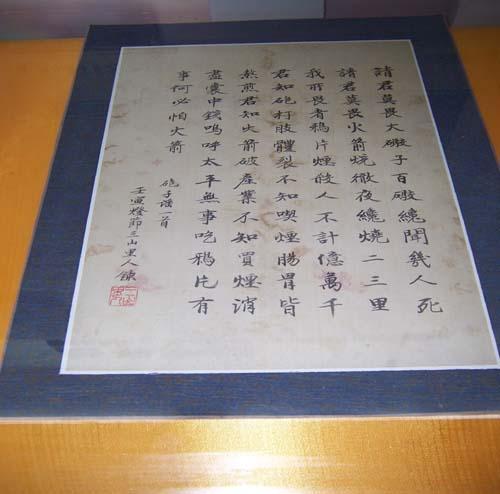 請君莫畏大礮子百礮纔聞幾人死
請君莫畏火箭燒徹夜纔燒二三里
我所畏者鴉片煙殺人不計億萬千
君知砲打肢體裂不知喫煙腸胃皆
熬煎君知火箭破產業不知買煙消
盡囊中錢嗚呼太平無事吃鴉片有
事何必怕火箭
砲子謠一首
壬寅燈節三山里人錄